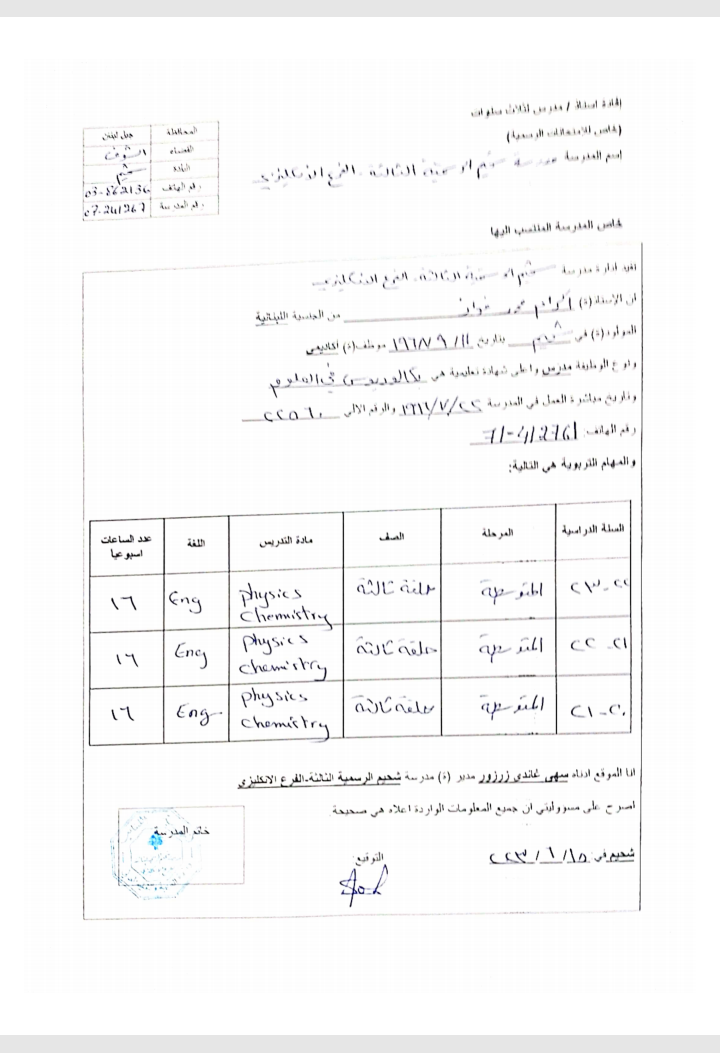 إفادة استاذ / مدرس لثلاث سنوات
(خاص للامتحانات الرسمية)
إسم المدرسة مدرسة شحيم الرسمية الثالثة - الفرع الانكليزي
المحافظة جبل لبنان
القضاء الشوف
البلدة شحيم
رقم الهاتف
رقم المدرسة 07-241267
خاص المدرسة المنتسب اليها
تفيد ادارة مدرسة شحيم الرسمية الثالثة - الفرع الانكليزي
ان الإستاذ(ة) محمد من الجنسية اللبنانية
المولود(ة) في شحيم بتاريخ موظف(ة) أكاديمي
ونوع الوظيفة مدرس واعلى شهادة تعليمية هي بكالوريوس في العلوم
وتاريخ مباشرة العمل في المدرسة والرقم الالي
رقم الهاتف 71-411276
والمهام التربوية هي التالية:
السنة الدراسية المرحلة الصف مادة التدريس اللغة عدد الساعات اسبوعيا
٢٢-٢٣ المتوسطة حلقة ثالثة physics chemistry Eng ١٦
٢١-٢٢ المتوسطة حلقة ثالثة physics chemistry Eng ١٦
٢٠-٢١ المتوسطة حلقة ثالثة physics chemistry Eng ١٦
انا الموقع ادناه سهى غاندي زرزور مدير (ة) مدرسة شحيم الرسمية الثالثة-الفرع الانكليزي
اصرح على مسووليتي ان جميع المعلومات الواردة اعلاه هي صحيحة
شحيم في
التوقيع
خاتم المدرسة